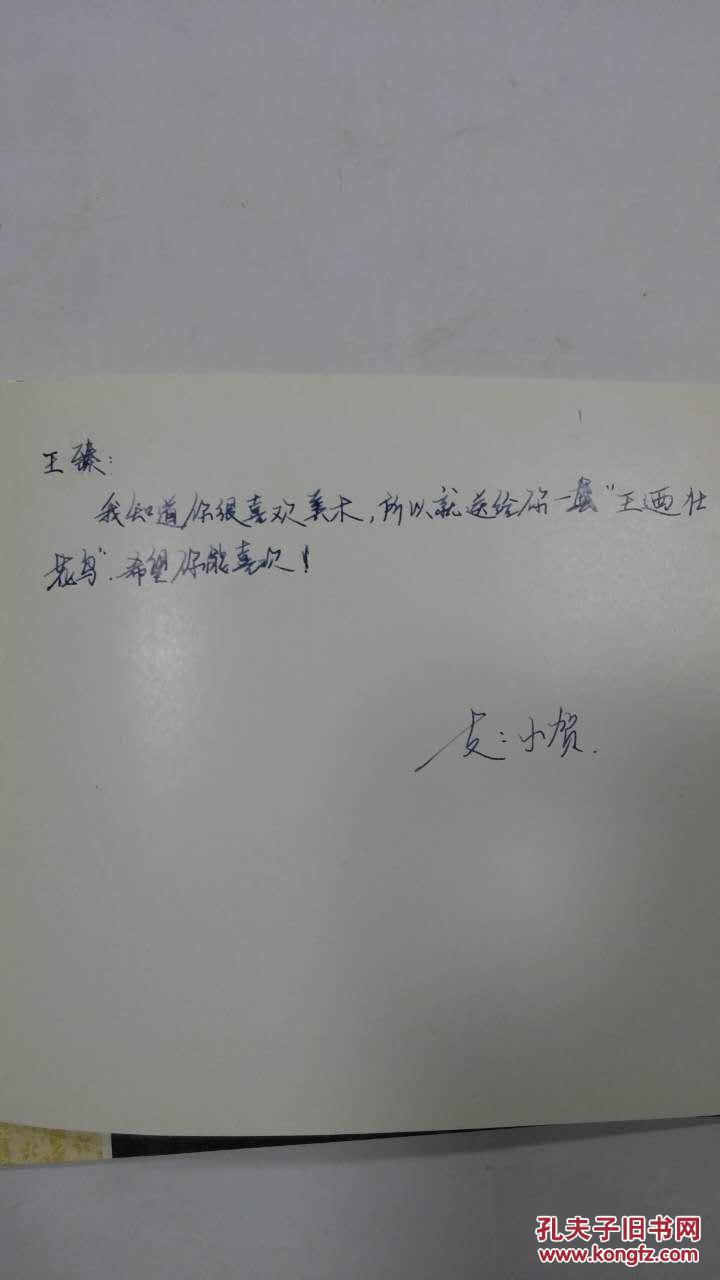 王臻:
我知道你很喜欢美术,所以就送给你一盒"王迺壮
花鸟".希望你能喜欢!
友:小贺.
孔夫子旧书网
www.kongfz.com